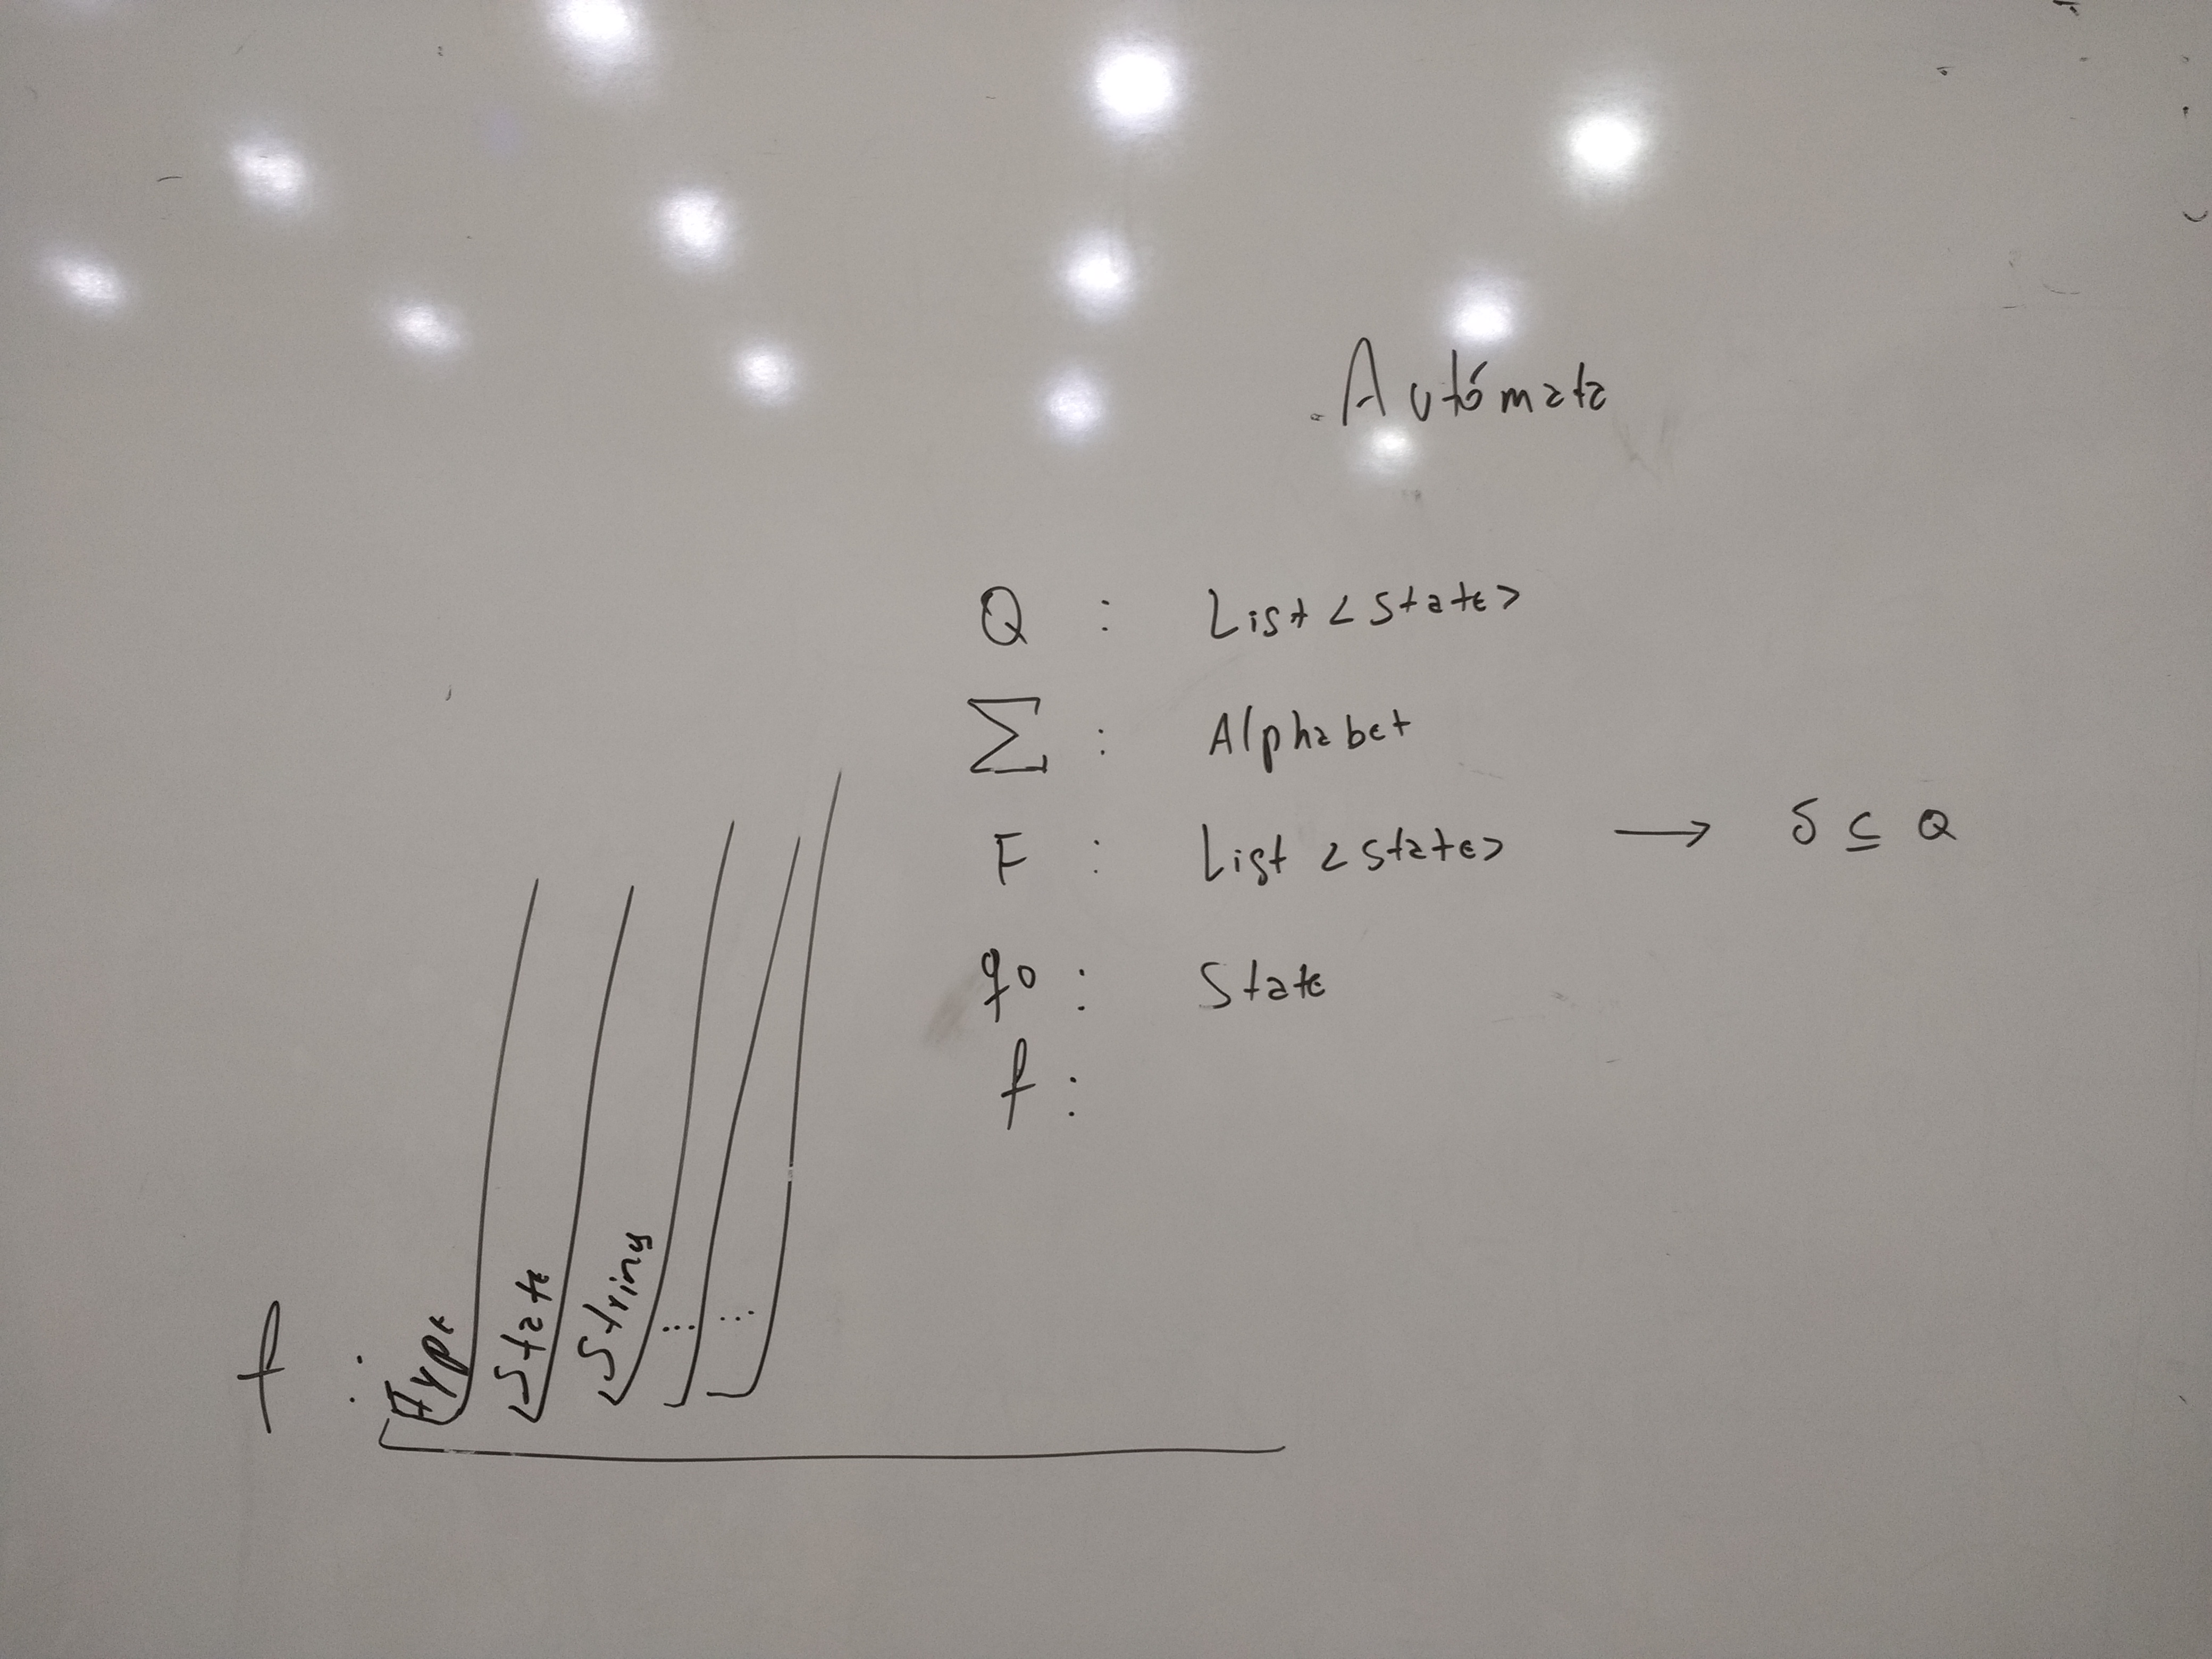 Autómata
Q : List<State>
Σ : Alphabet
F : List<State> → δ ⊆ Q
q0 : State
f :
f : Type State String ... ...